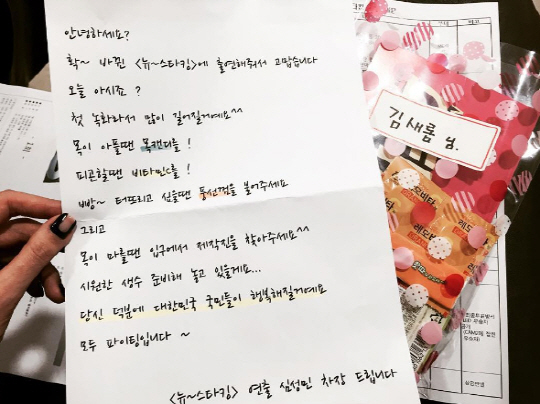 안녕하세요?
확~ 바뀐 <뉴~스타킹>에 출연해줘서 고맙습니다
오늘 아시죠?
첫 녹화라서 많이 길어질거예요^^
목이 아플땐 목캔디를!
피곤할땐 비타민C를!
빠방~ 터뜨리고 싶을땐 풍선껌을 불어주세요
그리고
목이 마를땐 입구에서 제작진을 찾아주세요^^
시원한 생수 준비해 놓고 있을게요...
당신 덕분에 대한민국 국민들이 행복해질거예요
모두 파이팅입니다~
<뉴~스타킹> 연출 심성민 차장 드립니다
김새롬 님.
레모나